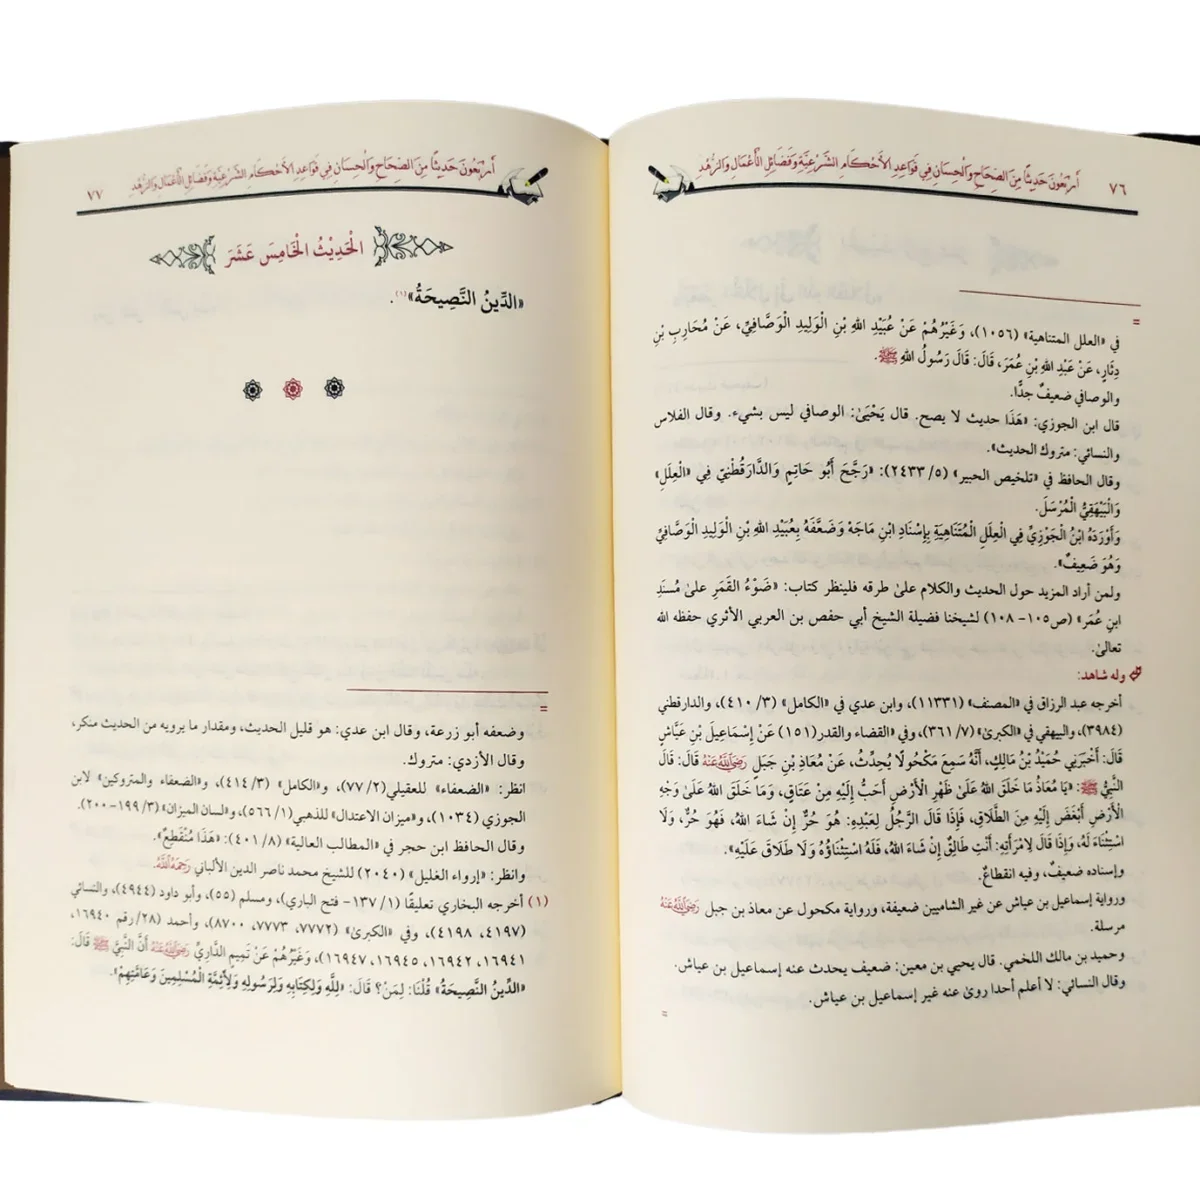 ٧٦ أَرْبَعُونَ حَدِيثًا مِنَ الصِّحَاحِ وَالْحِسَانِ فِي قَوَاعِدِ الأَحْكَامِ الشَّرْعِيَّةِ وَفَضَائِلِ الْأَعْمَالِ وَالزُّهْدِ
=
في «العلل المتناهية» (١٠٥٦)، وَغَيْرُهُمْ عَنْ عُبَيْدِ اللهِ بْنِ الْوَلِيدِ الْوَصَّافِيِّ، عَنْ مُحَارِبِ بْنِ
دِثَارٍ، عَنْ عَبْدِ اللهِ بْنِ عُمَرَ، قَالَ: قَالَ رَسُولُ اللهِ ﷺ.
والوصافي ضعيفٌ جدًّا.
قال ابن الجوزي: «هَذَا حديث لا يصح. قال يَحْيَىٰ: الوصافي ليس بشيء. وقال الفلاس
والنسائي: متروك الحديث».
وقال الحافظ في «تلخيص الحبير» (٥/ ٢٤٣٣): «رَجَّحَ أَبُو حَاتِمٍ وَالدَّارَقُطْنِيّ فِي «الْعِلَلِ»
وَالْبَيْهَقِيُّ الْمُرْسَلَ.
وَأَوْرَدَهُ ابْنُ الْجَوْزِيِّ فِي الْعِلَلِ الْمُتَنَاهِيَةِ بِإِسْنَادِ ابْنِ مَاجَهْ وَضَعَّفَهُ بِعُبَيْدِ اللهِ بْنِ الْوَلِيدِ الْوَصَّافِيِّ
وَهُوَ ضَعِيفٌ».
ولمن أراد المزيد حول الحديث والكلام علىٰ طرقه فلينظر كتاب: «ضَوْءُ القَمَرِ علىٰ مُسنَدِ
ابنِ عُمَر» (ص١٠٥- ١٠٨) لشيخنا فضيلة الشيخ أبي حفص بن العربي الأثري حفظه الله
تعالىٰ.
وله شاهد:
أخرجه عبد الرزاق في «المصنف» (١١٣٣١)، وابن عدي في «الكامل» (٣/ ٤١٠)، والدارقطني
(٣٩٨٤)، والبيهقي في «الكبرىٰ» (٧/ ٣٦١)، وفي «القضاء والقدر(١٥١) عَنْ إِسْمَاعِيلَ بْنِ عَيَّاشٍ
قَالَ: أَخْبَرَنِي حُمَيْدُ بْنُ مَالِكٍ، أَنَّهُ سَمِعَ مَكْحُولًا يُحَدِّثُ، عَنْ مُعَاذِ بْنِ جَبَلٍ رَضِيَ اللَّهُ عَنْهُ قَالَ: قَالَ
النَّبِيُّ ﷺ: «يَا مُعَاذُ مَا خَلَقَ اللهُ عَلَىٰ ظَهْرِ الْأَرْضِ أَحَبُّ إِلَيْهِ مِنْ عَتَاقٍ، وَمَا خَلَقَ اللهُ عَلَىٰ وَجْهِ
الْأَرْضِ أَبْغَضَ إِلَيْهِ مِنَ الطَّلَاقِ، فَإِذَا قَالَ الرَّجُلُ لِعَبْدِهِ: هُوَ حُرٌّ إِنْ شَاءَ اللهُ، فَهُوَ حُرٌّ، وَلَا
اسْتِثْنَاءَ لَهُ، وَإِذَا قَالَ لِامْرَأَتِهِ: أَنْتِ طَالِقٌ إِنْ شَاءَ اللهُ، فَلَهُ اسْتِثْنَاؤُهُ وَلَا طَلَاقَ عَلَيْهِ».
وإسناده ضعيفٌ، وفيه انقطاعٌ.
ورواية إسماعيل بن عياش عن غير الشاميين ضعيفة، ورواية مكحول عن معاذ بن جبل رَضِيَ اللَّهُ عَنْهُ
مرسلة.
وحميد بن مالك اللخمي. قال يحيي بن معين: ضعيف يحدث عنه إسماعيل بن عياش.
وقال النسائي: لا أعلم أحدا روىٰ عنه غير إسماعيل بن عياش.
=
أَرْبَعُونَ حَدِيثًا مِنَ الصِّحَاحِ وَالْحِسَانِ فِي قَوَاعِدِ الأَحْكَامِ الشَّرْعِيَّةِ وَفَضَائِلِ الْأَعْمَالِ وَالزُّهْدِ ٧٧
الْحَدِيْثُ الْخَامِسَ عَشَرَ
«الدِّينُ النَّصِيحَةُ»(١).
=
وضعفه أبو زرعة، وقال ابن عدي: هو قليل الحديث، ومقدار ما يرويه من الحديث منكر،
وقال الأزدي: متروك.
انظر: «الضعفاء» للعقيلي(٢/ ٧٧)، و«الكامل» (٣/ ٤١٤)، و«الضعفاء والمتروكين» لابن
الجوزي (١٠٣٤)، و«ميزان الاعتدال» للذهبي(١/ ٥٦٦)، و«لسان الميزان» (٣/ ١٩٩-٢٠٠).
وقال الحافظ ابن حجر في «المطالب العالية» (٨/ ٤٠١): «هَذَا مُنْقَطِعٌ».
وانظر: «إرواء الغليل» (٢٠٤٠) للشيخ محمد ناصر الدين الألباني رَحِمَهُ اللَّهُ.
(١) أخرجه البخاري تعليقًا (١/ ١٣٧- فتح الباري)، ومسلم (٥٥)، وأبو داود (٤٩٤٤)، والنسائي
(٤١٩٧، ٤١٩٨)، وفي «الكبرىٰ» (٧٧٧٢، ٧٧٧٣، ٨٧٠٠)، وأحمد (٢٨/ رقم ١٦٩٤٠،
١٦٩٤١، ١٦٩٤٢، ١٦٩٤٥، ١٦٩٤٧)، وَغَيْرُهُمْ عَنْ تَمِيمٍ الدَّارِيِّ رَضِيَ اللَّهُ عَنْهُ أَنَّ النَّبِيَّ ﷺ قَالَ:
«الدِّينُ النَّصِيحَةُ» قُلْنَا: لِمَنْ؟ قَالَ: «لِلَّهِ وَلِكِتَابِهِ وَلِرَسُولِهِ وَلِأَئِمَّةِ الْمُسْلِمِينَ وَعَامَّتِهِمْ».